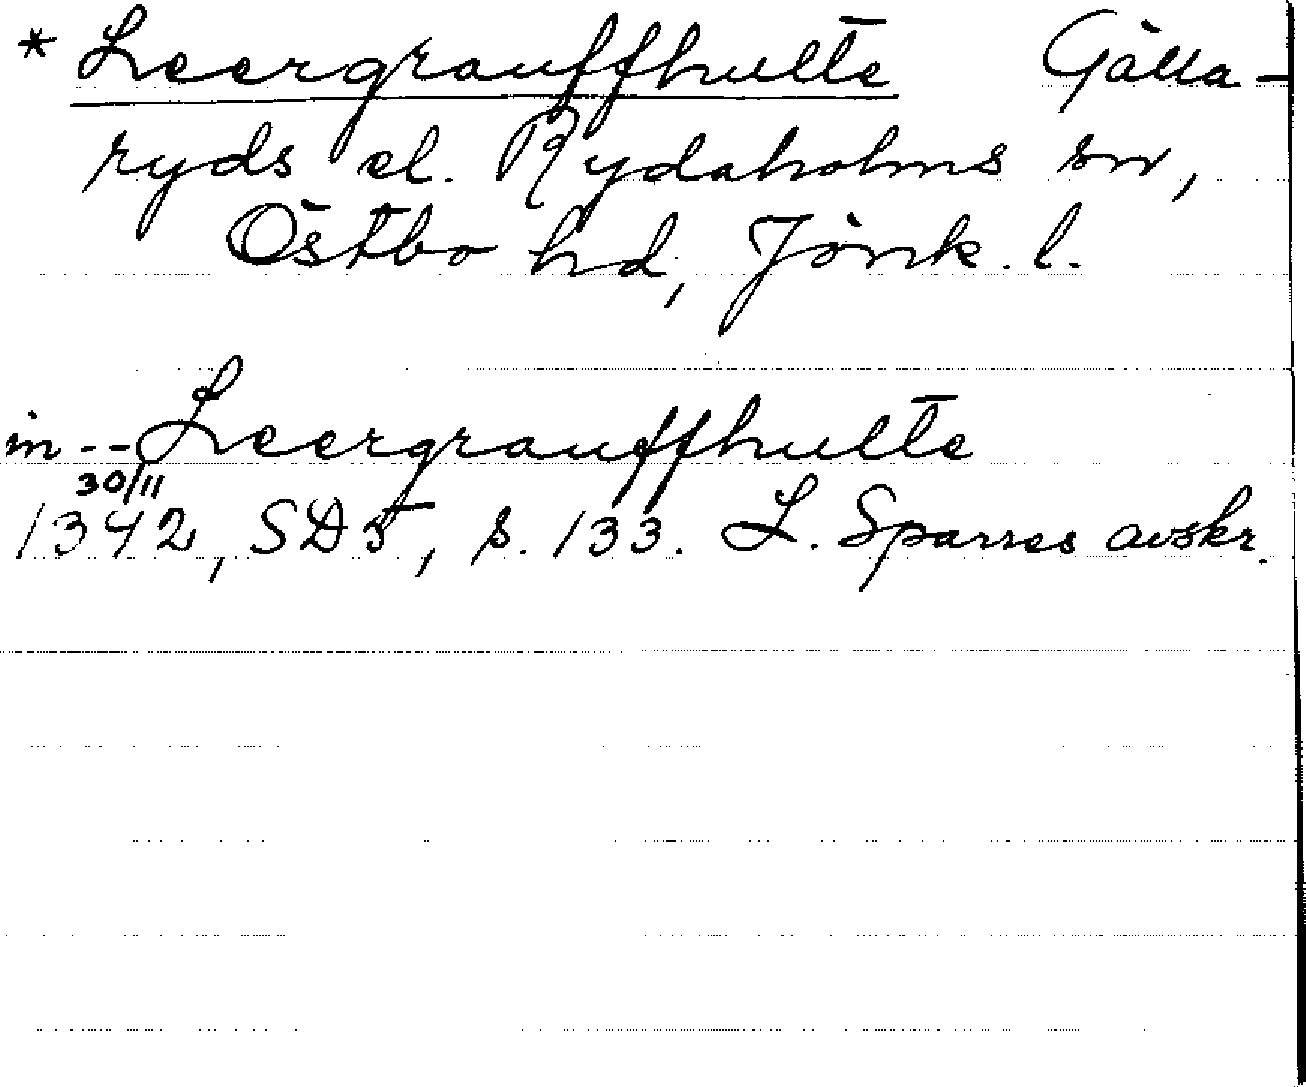 * Leergrauffhulte Gälla-
ryds el. Rydaholms sn,
Östbo hd, Jönk. l.
in -- Leergrauffhulte
30/11
1342, SD5, s. 133. L. Sparres avskr.